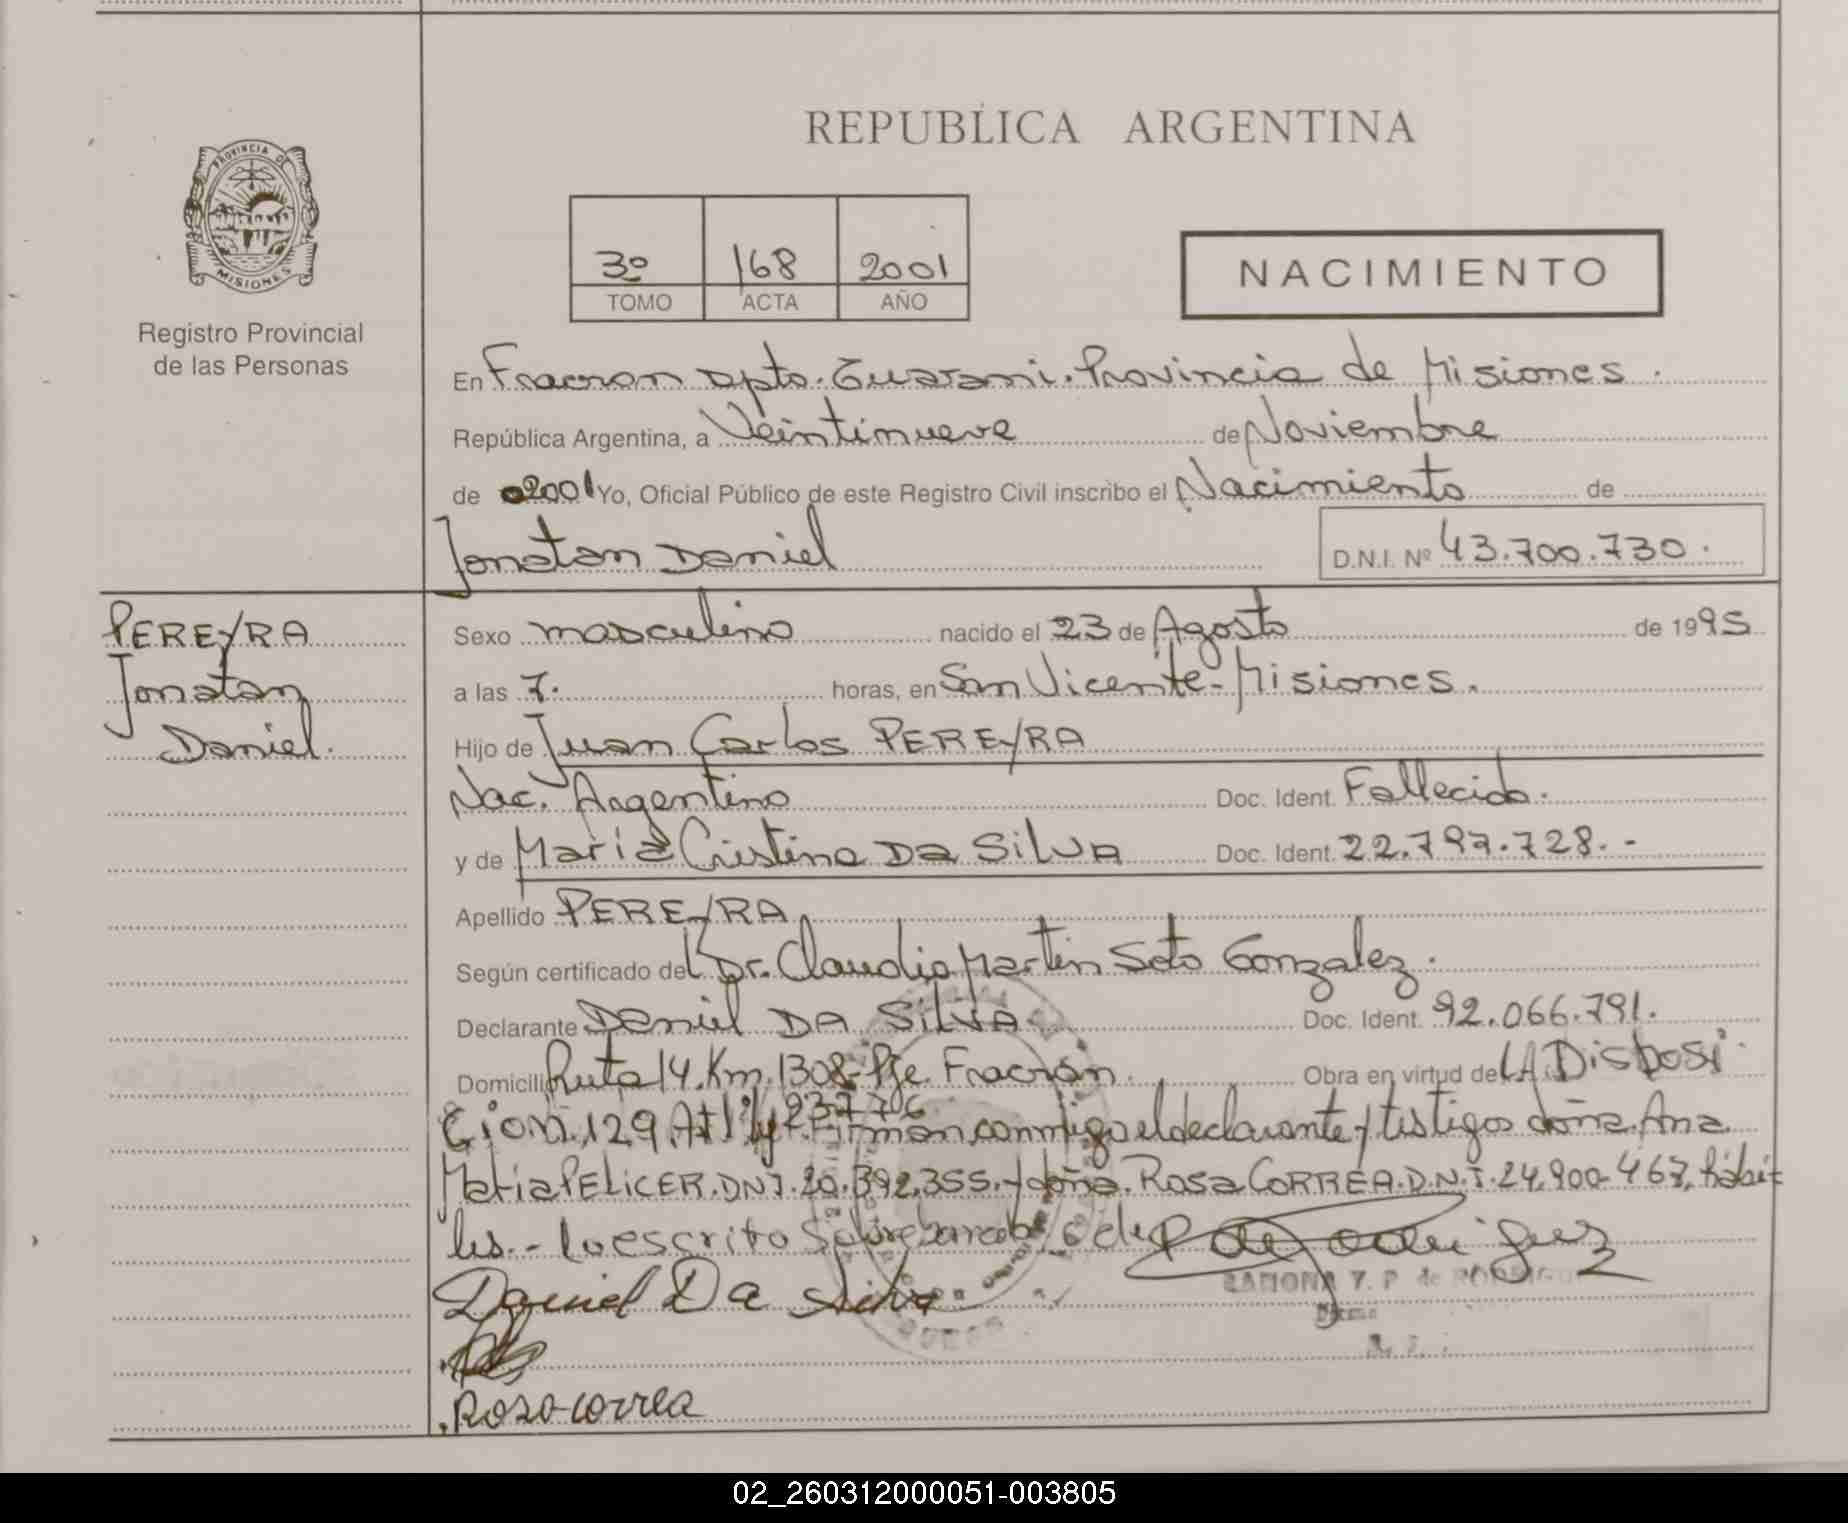 REPUBLICA ARGENTINA
PROVINCIA DE
MISIONES
Registro Provincial
de las Personas
3º 168 2001
TOMO ACTA AÑO
NACIMIENTO
En Fracran Dpto. Guarani. Provincia de Misiones.
República Argentina, a Veintinueve de Noviembre
de 2001 Yo, Oficial Público de este Registro Civil inscribo el Nacimiento de
Jonatan Daniel D.N.I. Nº 43.700.730.
PEREYRA
Jonatan
Daniel.
Sexo masculino nacido el 23 de Agosto de 1995
a las 7. horas, en San Vicente-Misiones.
Hijo de Juan Carlos PEREYRA
Nac. Argentino Doc. Ident. Fallecido.
y de María Cristina DA SILVA Doc. Ident. 22.797.728.-
Apellido PEREYRA
Según certificado del Dr. Claudio Martin Soto Gonzalez.
Declarante Daniel DA SILVA Doc. Ident. 92.066.791.
Domicilio Ruta 14.Km.1308-Pje. Fracrán. Obra en virtud de LA Disposi
Cion.129. Firman conmigo el declarante y testigos doña Ana
María PELICER.DNI.20.392.355.-y doña. Rosa CORREA.D.N.I.24.900.467, hábi
les.- lo escrito Sobre
RAMONA Y. P. de RODRIGU
Daniel Da Silva
Rosa correa
02_260312000051-003805